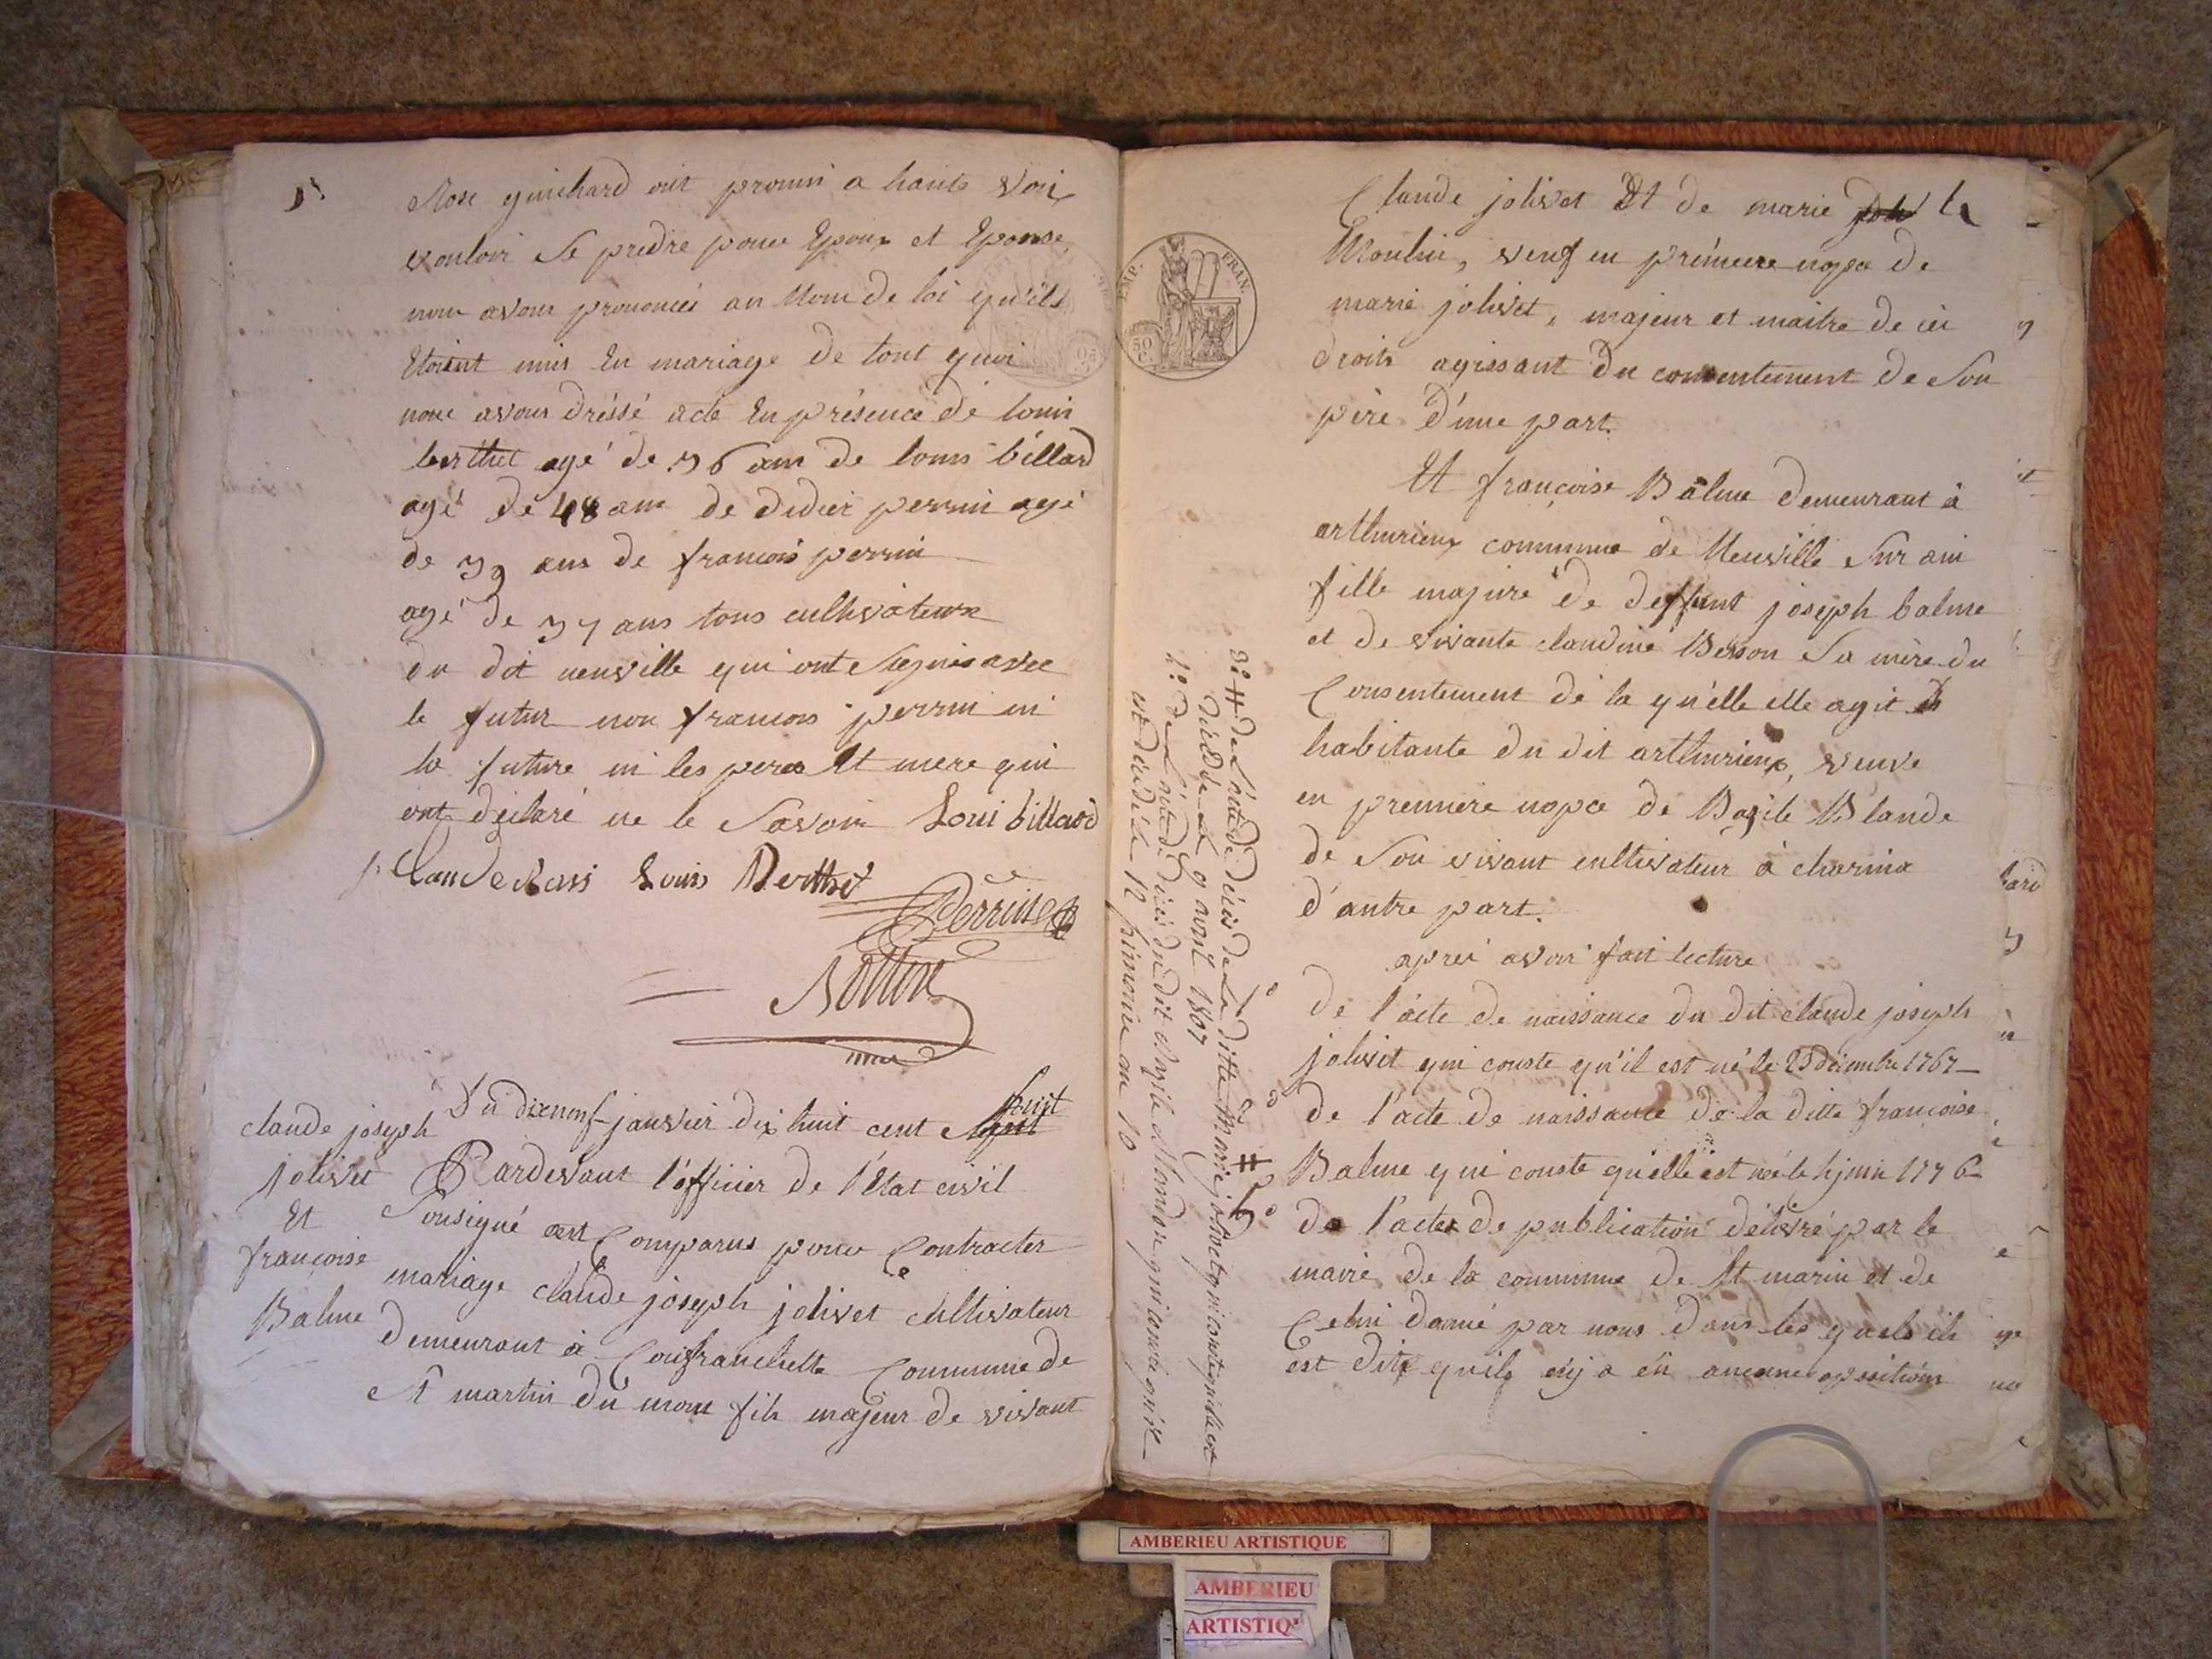 Rose guichard ont promis a haute Voix
vouloir Se predre pour Epoux et Epouse,
nous avons prononcés au Nom de loi qu'ils
Etoient unis En mariage de tout quoi
nous avons dréssé acte En présence de louis
berthet agé de 36 ans de louis billard
agé de 48 ans de didier perrin agé
de 39 ans de francois perrin
agé de 37 ans tous cultivateurs
du dit neuville qui ont Signés avec
le futur non francois perrin ni
la future ni les peres Et mere qui
ont déclaré ne le Savoir Loui billard
Claude Louis Berthet
Perrin
maire
claude joseph
jolivet
Et
françoise
Balme
Du dixneuf janvier dix huit cent Sept huit
Pardevant l'officier de l'Etat civil
Sousigné ont Comparus pour Contracter
mariage claude joseph jolivet cultivateur
demeurant à Commune de
St martin du mont fils majeur de vivant
EMP. FRAN.
50 C.
3º # de l'acte de décès de La ditte marie jolivet qui conste qu'elle est
décédée Le 9 avril 1807
4º de L'acte de décès du dit Basile Blande qui conste qu'il
est décédé le 12 pimaire an 10
Claude jolivet Et de marie
Moulin, veuf en prémiere nopce de
marie jolivet, majeur et maitre de ces
droits agissant du consentement de Son
père d'une part.
Et françoise Balme demeurant à
arthurieux commune de Neuville Sur ain
fille majure de deffunt joseph balme
et de vivante claudine Besson Sa mère du
Consentement de la qu'elle elle agit
habitante du dit arthurieux, veuve
en premiere nopce de Basile Blande
de Son vivant cultivateur à charina
d'autre part.
apres avoir fait lecture
de l'acte de naissance du dit claude joseph
jolivet qui conste qu'il est né le 25 décembre 1767
de l'acte de naissance de la ditte françoise
Balme qui conste qu'elle est née le 4 juin 1776
de l'acte de publication délivré par le
maire de la commune de St marin et de
Celui donné par nous dans les quels ils
est dit qu'ils n'y a eu aucune oposition
AMBERIEU ARTISTIQUE
AMBERIEU
ARTISTIQ